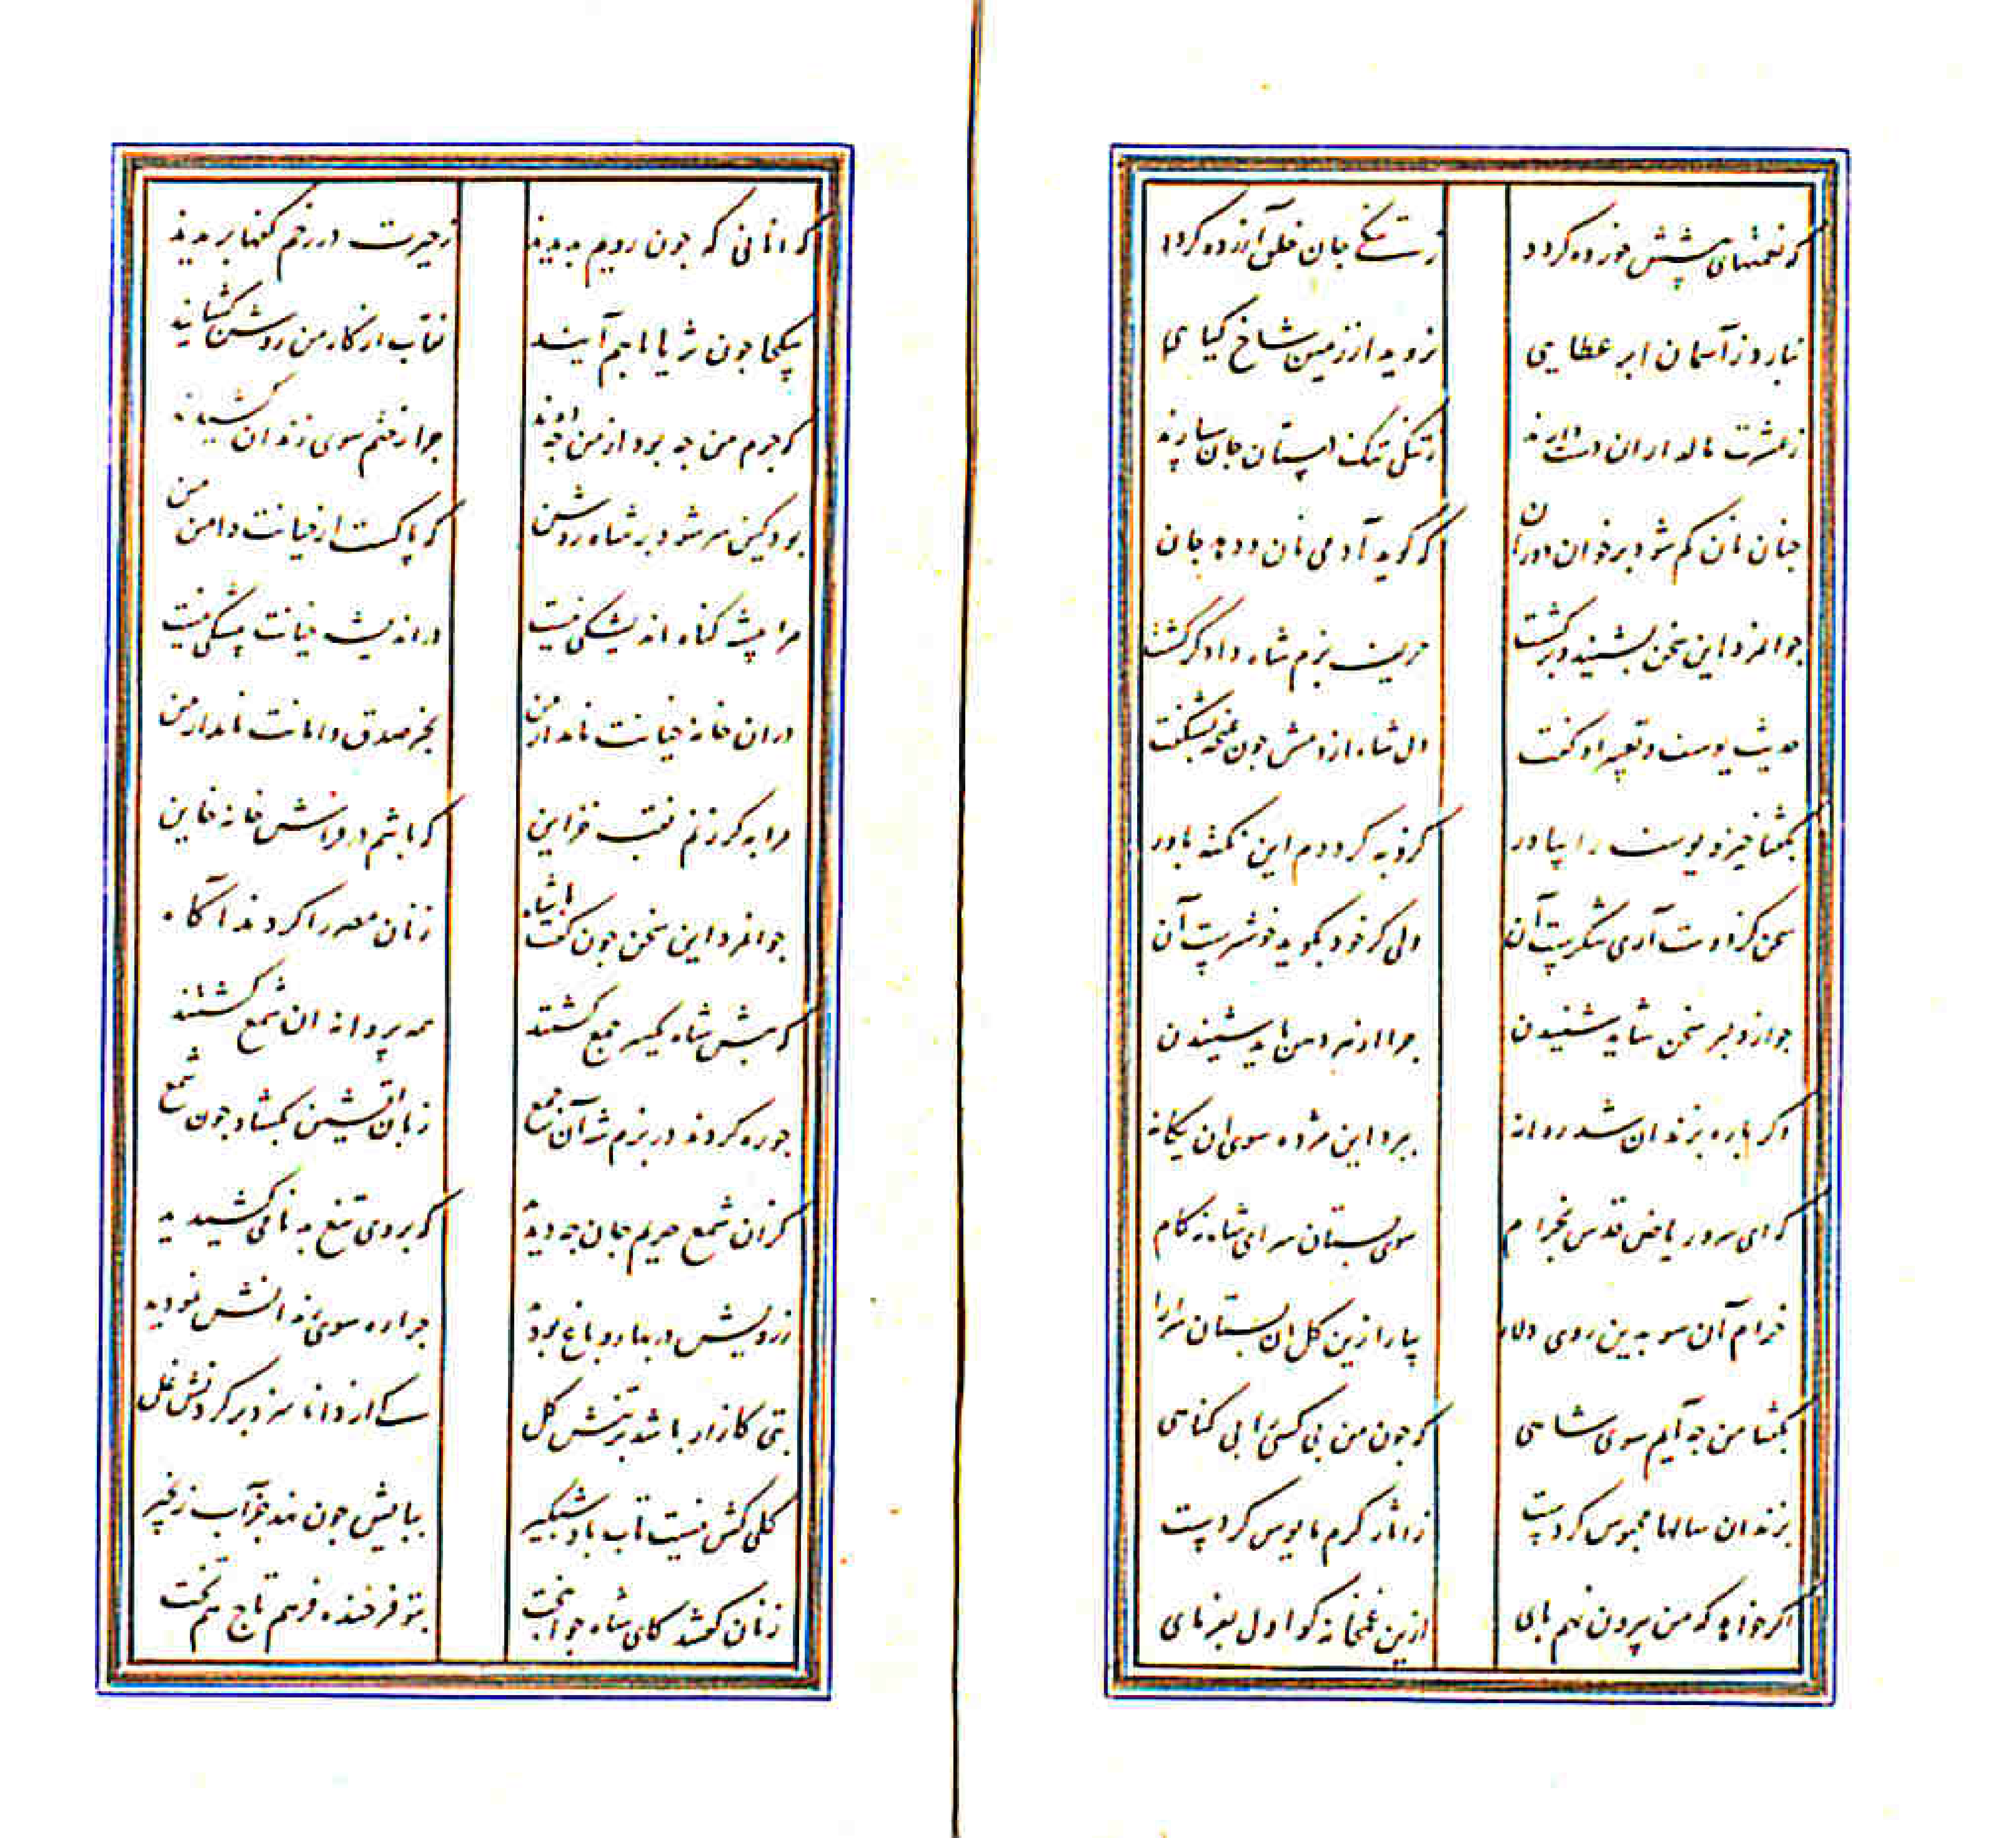 که نعمتهای پیشش خورده کردد ز تنکی جان خلق آزرده کردد
نبارد ز آسمان ابر عطایی نروید از زمین شاخ کیاهی
ز عشرت مالداران دست دارند ز تنکی تنک دستان جان سپارند
جنان نان کم شود بر خوان دوران که کوید آدمی نان و دهد جان
جوانمرد این سخن بشنید و برکشت حریف بزم شاه دادکر کشت
حدیث یوسف و تعبیر او کفت دل شاه از دمش جون غنجه بشکفت
بکفتا خیز و یوسف را بیاور کزو به کرددم این نکته باور
سخن کز دوست آری شکرست آن ولی کر خود بکوید خوشترست آن
جو از دلبر سخن شاید شنیدن جرا از هر دهن باید شنیدن
دکر باره بزندان شد روانه ببرد این مژده سوی ان یکانه
که ای سرو ریاض قدس بخرام سوی بستان سرای شاه نه کام
خرام آن سو بدین روی دلارا بیارا زین کل ان بستان سرا را
بکفتا من جه آیم سوی شاهی که جون من بی کسی را بی کناهی
بزندان سالها محبوس کردست ز آثار کرم مایوس کردست
اکر خواهد که من بیرون نهم پای ازین غمخانه کو اول بفرمای
که انانی که جون رویم بدیدند ز حیرت در رخم کفها بریدند
بیکجا جون ثریا با هم آیند نقاب از کار من روشن کشایند
که جرم من جه بود از من جه دیدند جرا رختم سوی زندان کشیدند
بود کین سر شود بر شاه روشن که پاکست از خیانت دامن من
مرا پیشه کناه اندیشکی نیست در اندیشه خیانت پیشکی نیست
در ان خانه خیانت نامد از من بجز صدق و امانت نامد از من
مرا به کر زنم نقب خزاین که باشم در فراش خانه خاین
جوانمرد این سخن جون کفت با شاه زنان مصر را کردند آکاه
که پیش شاه یکسر جمع کشتند همه پروانه ان شمع کشتند
جو ره کردند در بزم شه آن جمع زبان آتشین بکشاد جون شمع
کزان شمع حریم جان جه دیدید که بر وی تیغ بدنامی کشیدید
ز رویش در بهار و باغ بودید جرا ره سوی زندانش نمودید
بتی کازار باشد بر تنش کل کی از دانا سزد بر کردنش غل
کلی کش نیست تاب باد شبکیر بپایش جون نهد جز آب زنجیر
زنان کفتند کای شاه جوانبخت بتو فرخنده فر هم تاج هم تخت